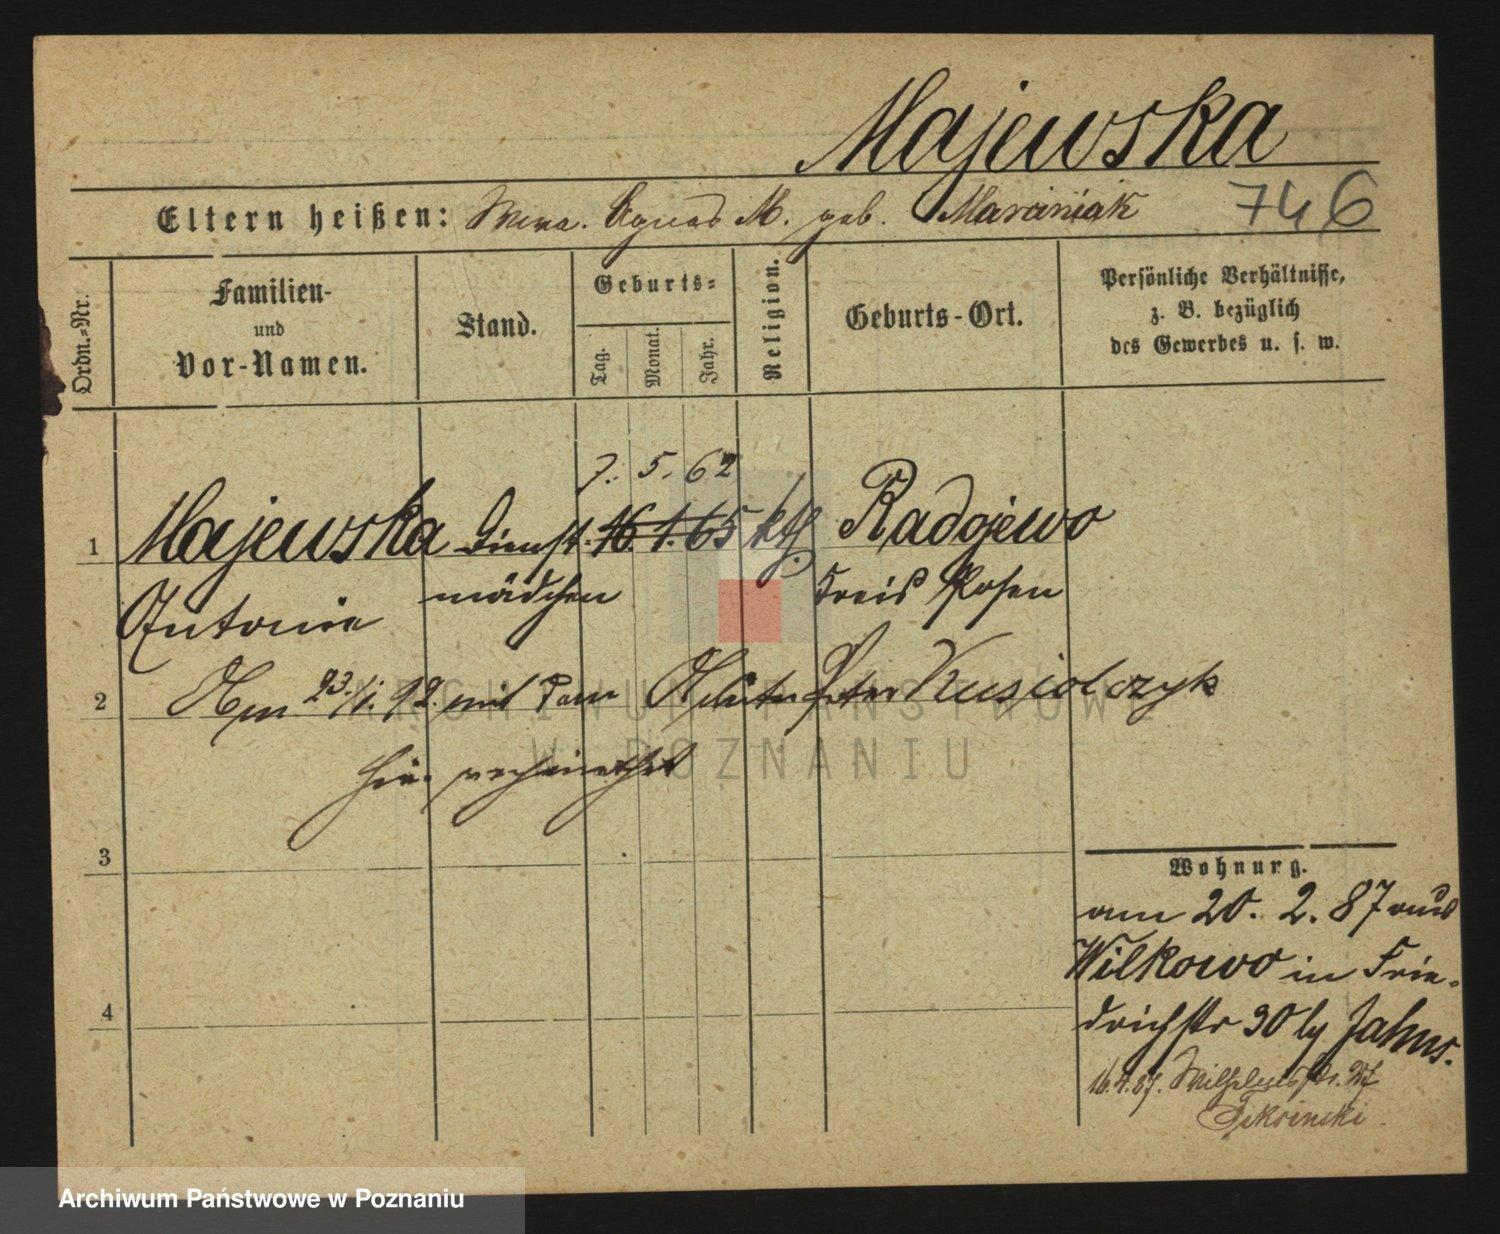 Majewska
746
Eltern heißen: Agnes M. geb. Marciniak
Ordn.-Nr.
Familien-
und
Vor-Namen.
Stand.
Geburts-
Tag. Monat. Jahr.
Religion.
Geburts-Ort.
Persönliche Verhältnisse,
z. B. bezüglich
des Gewerbes u. s. w.
7. 5. 62
1 Majewska Dienst- 16. 1. 65 kth. Radojewo
Antonie mädchen Kreis Posen
2 Am 23./1. 92. mit dem Arbeiter Peter Kusiolczyk
hier verheirathet
3
4
Wohnung.
am 20. 2. 87 aus
Wilkowo in Frie-
drichstr 30 by Jahns.
16.4.87. Wilhelmstr. 27
ARCHIWUM PAŃSTWOWE
W POZNANIU
Archiwum Państwowe w Poznaniu